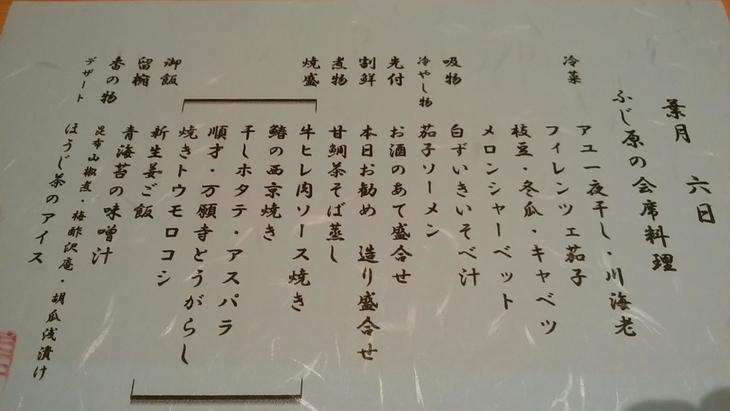 葉月 六日
ふじ原の会席料理
冷菜 アユ一夜干し・川海老
フィレンツェ茄子
枝豆・冬瓜・キャベツ
メロンシャーベット
吸物 白ずいきいそべ汁
冷やし物 茄子ソーメン
先付 お酒のあて盛合せ
割鮮 本日お勧め 造り盛合せ
煮物 甘鯛茶そば蒸し
焼盛 牛ヒレ肉ソース焼き
鰆の西京焼き
干しホタテ・アスパラ
順才・万願寺とうがらし
焼きトウモロコシ
御飯 新生姜ご飯
留椀 青海苔の味噌汁
香の物 昆布山椒煮・梅酢沢庵・胡瓜浅漬け
デザート ほうじ茶のアイス